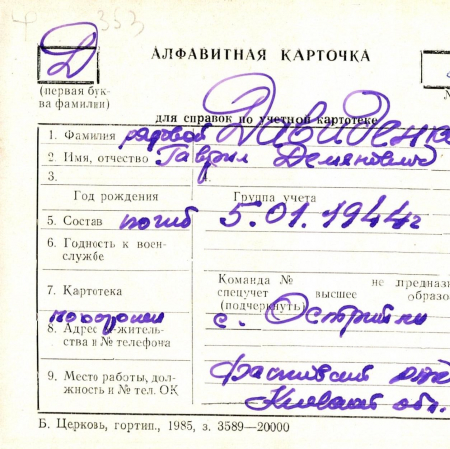 353
Д
АЛФАВИТНАЯ КАРТОЧКА
(первая бук-
ва фамилии)
для справок по учетной картотеке
1. Фамилия рядовой Давиденко
2. Имя, отчество Гаврил Демянович
3. 4.
Год рождения Группа учета
5. Состав погиб 5.01.1944г
6. Годность к воен-
службе
Команда № не предназ
7. Картотека спецучет высшее образо
(подчеркнуть)
похоронен с. Острийки
8. Адрес житель-
ства и № телефона
9. Место работы, дол-
жность и № тел. ОК
Киевской обл.
Б. Церковь, гортип., 1985, з. 3589—20000